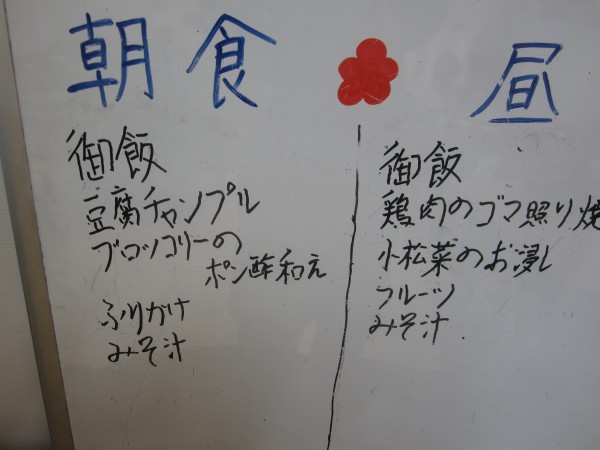 朝食
御飯
豆腐チャンプル
ブロッコリーの
ポン酢和え
ふりかけ
みそ汁
昼
御飯
鶏肉のゴマ照り焼
小松菜のお浸し
フルーツ
みそ汁